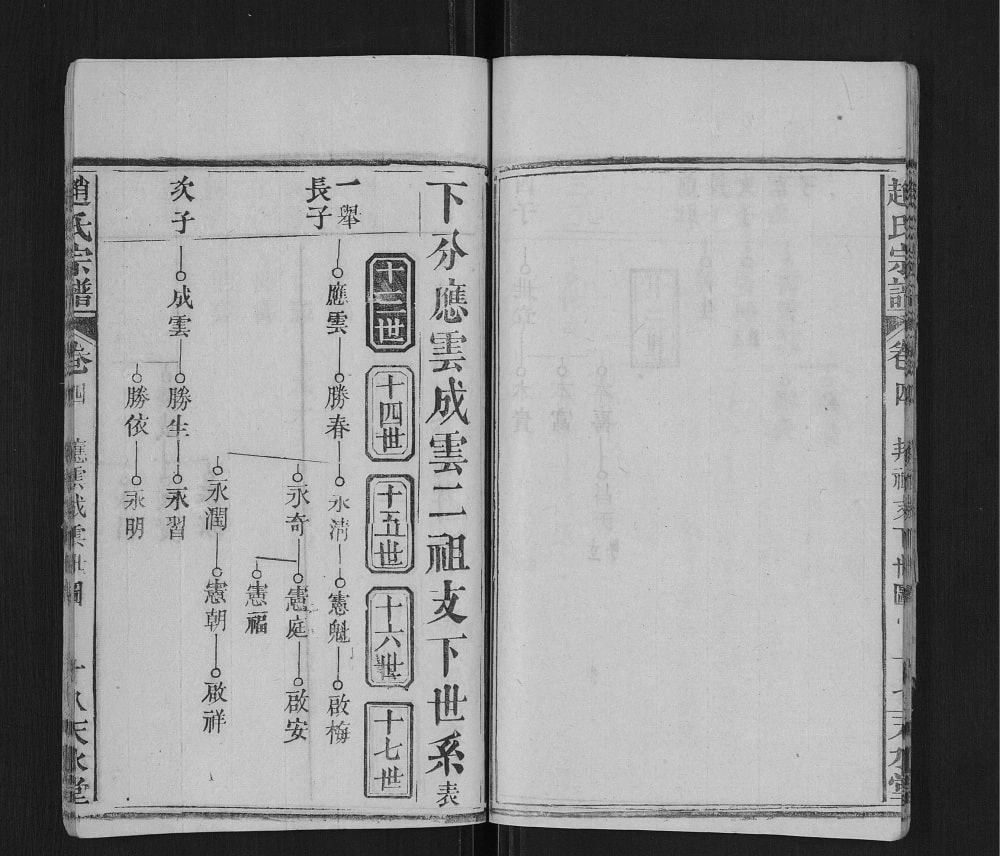 趙氏宗譜
卷四
世圖
下分應雲成雲二祖支下世系表
十三世
十四世
十五世
十六世
十七世
一舉
長子
應雲
勝春
永清
憲魁
啟梅
永奇
憲庭
啟安
憲福
永潤
憲朝
啟祥
次子
成雲
勝生
永習
勝依
永明
趙氏宗譜
卷四
應雲成雲世圖
十八天水堂